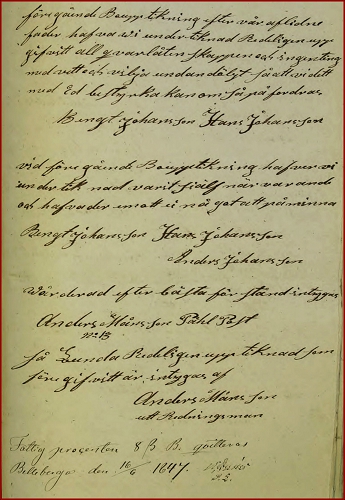 föregående Bouppteckning efter vår aflidne
fader hafva wi undertecknad Redeligen upp
gifvit all qvarlåten skappen och ingenting
med vett och vilja undandålgt så att vi ditt
med Ed bestyrka kan om så på fordras
Bengt Johansson Hans Johansson
vid föregående Bouppteckning hafver vi
undertecknad varit siälf närvarande
och hafva der emott ei någott att påminna
Bengt Johansson Hans Johansson
Anders Johansson
Wärderad efter bästa förstand intygas
Anders Månsson Påhl Påst
N: 13
så Lunda Redeligen upptecknad som
föregifvitt är, intygas af
Anders Månsson
utt Redningsman
Fattig procenten 8 ß. B. qvitteras
Belleberga den 16/6 1847.